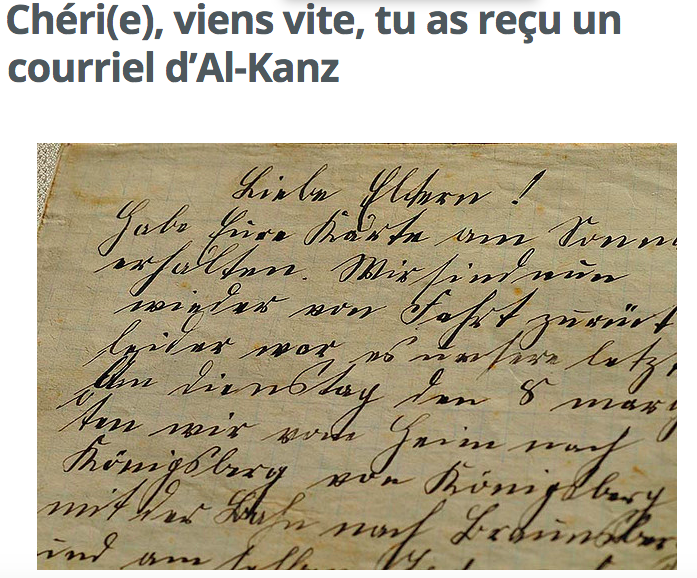 Chéri(e), viens vite, tu as reçu un
courriel d’Al-Kanz
Liebe Eltern !
Habe Eure Karte am Sonn
erhalten. Wir sind nun
wieder von Fahrt zurück
leider war es unsere letz
Am dienstag den 8 mar
ten wir vom Heim nach
Königsberg von Königsberg
mit der Bahn nach Braunsber
und am